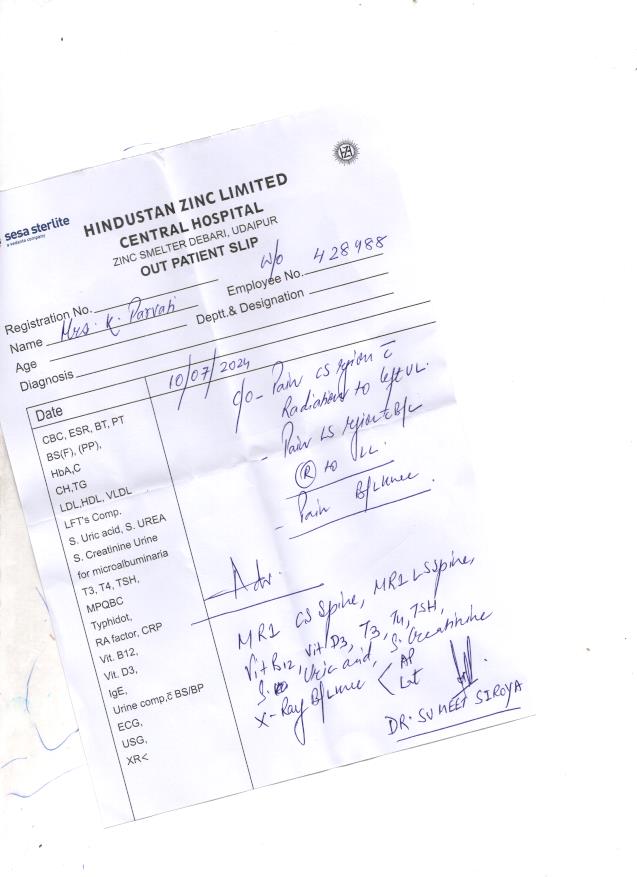 sesa sterlite
a vedanta company
HZL
HINDUSTAN ZINC LIMITED
CENTRAL HOSPITAL
ZINC SMELTER DEBARI, UDAIPUR
OUT PATIENT SLIP
Registration No.
w/o
Employee No. 428988
Name Mrs. K. Parvati
Deptt.& Designation
Age
Diagnosis
Date
10/07/2024
CBC, ESR, BT, PT
BS(F), (PP),
HbA,C
CH,TG
LDL,HDL, VLDL
LFT's Comp.
S. Uric acid, S. UREA
S. Creatinine Urine
for microalbuminaria
T3, T4, TSH,
MPQBC
Typhidot,
RA factor, CRP
Vit. B12,
Vit. D3,
IgE,
Urine comp,č BS/BP
ECG,
USG,
XR<
c/o - Pain CS region c̄
Radiation to left UL.
- Pain LS region c̄ B/L
Ⓡ to LL.
- Pain B/L knee.
Adv.
MRI CS Spine, MRI LS Spine,
Vit B12, Vit D3, T3, T4, TSH,
S. Uric acid, S. Creatinine
X-Ray B/L knee < AP
Lat
DR. SUMEET SIROYA